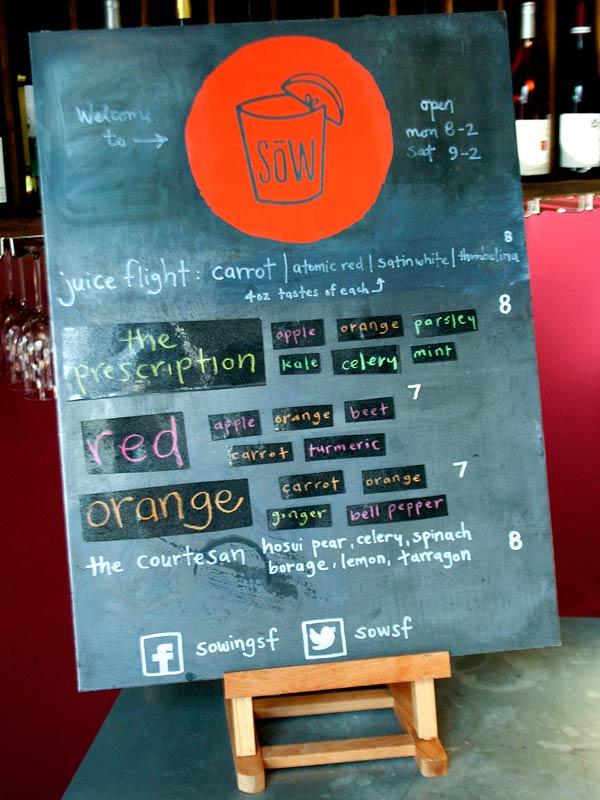 Welcome
to →
SŌW
open
mon 8-2
sat 9-2
8
juice flight: carrot | atomic red | satin white | thumbelina
4oz tastes of each
the
prescription
apple orange parsley 8
kale celery mint
red
apple orange beet 7
carrot turmeric
orange
carrot orange 7
ginger bell pepper
the courtesan
hosui pear, celery, spinach 8
borage, lemon, tarragon
f sowingsf sowsf